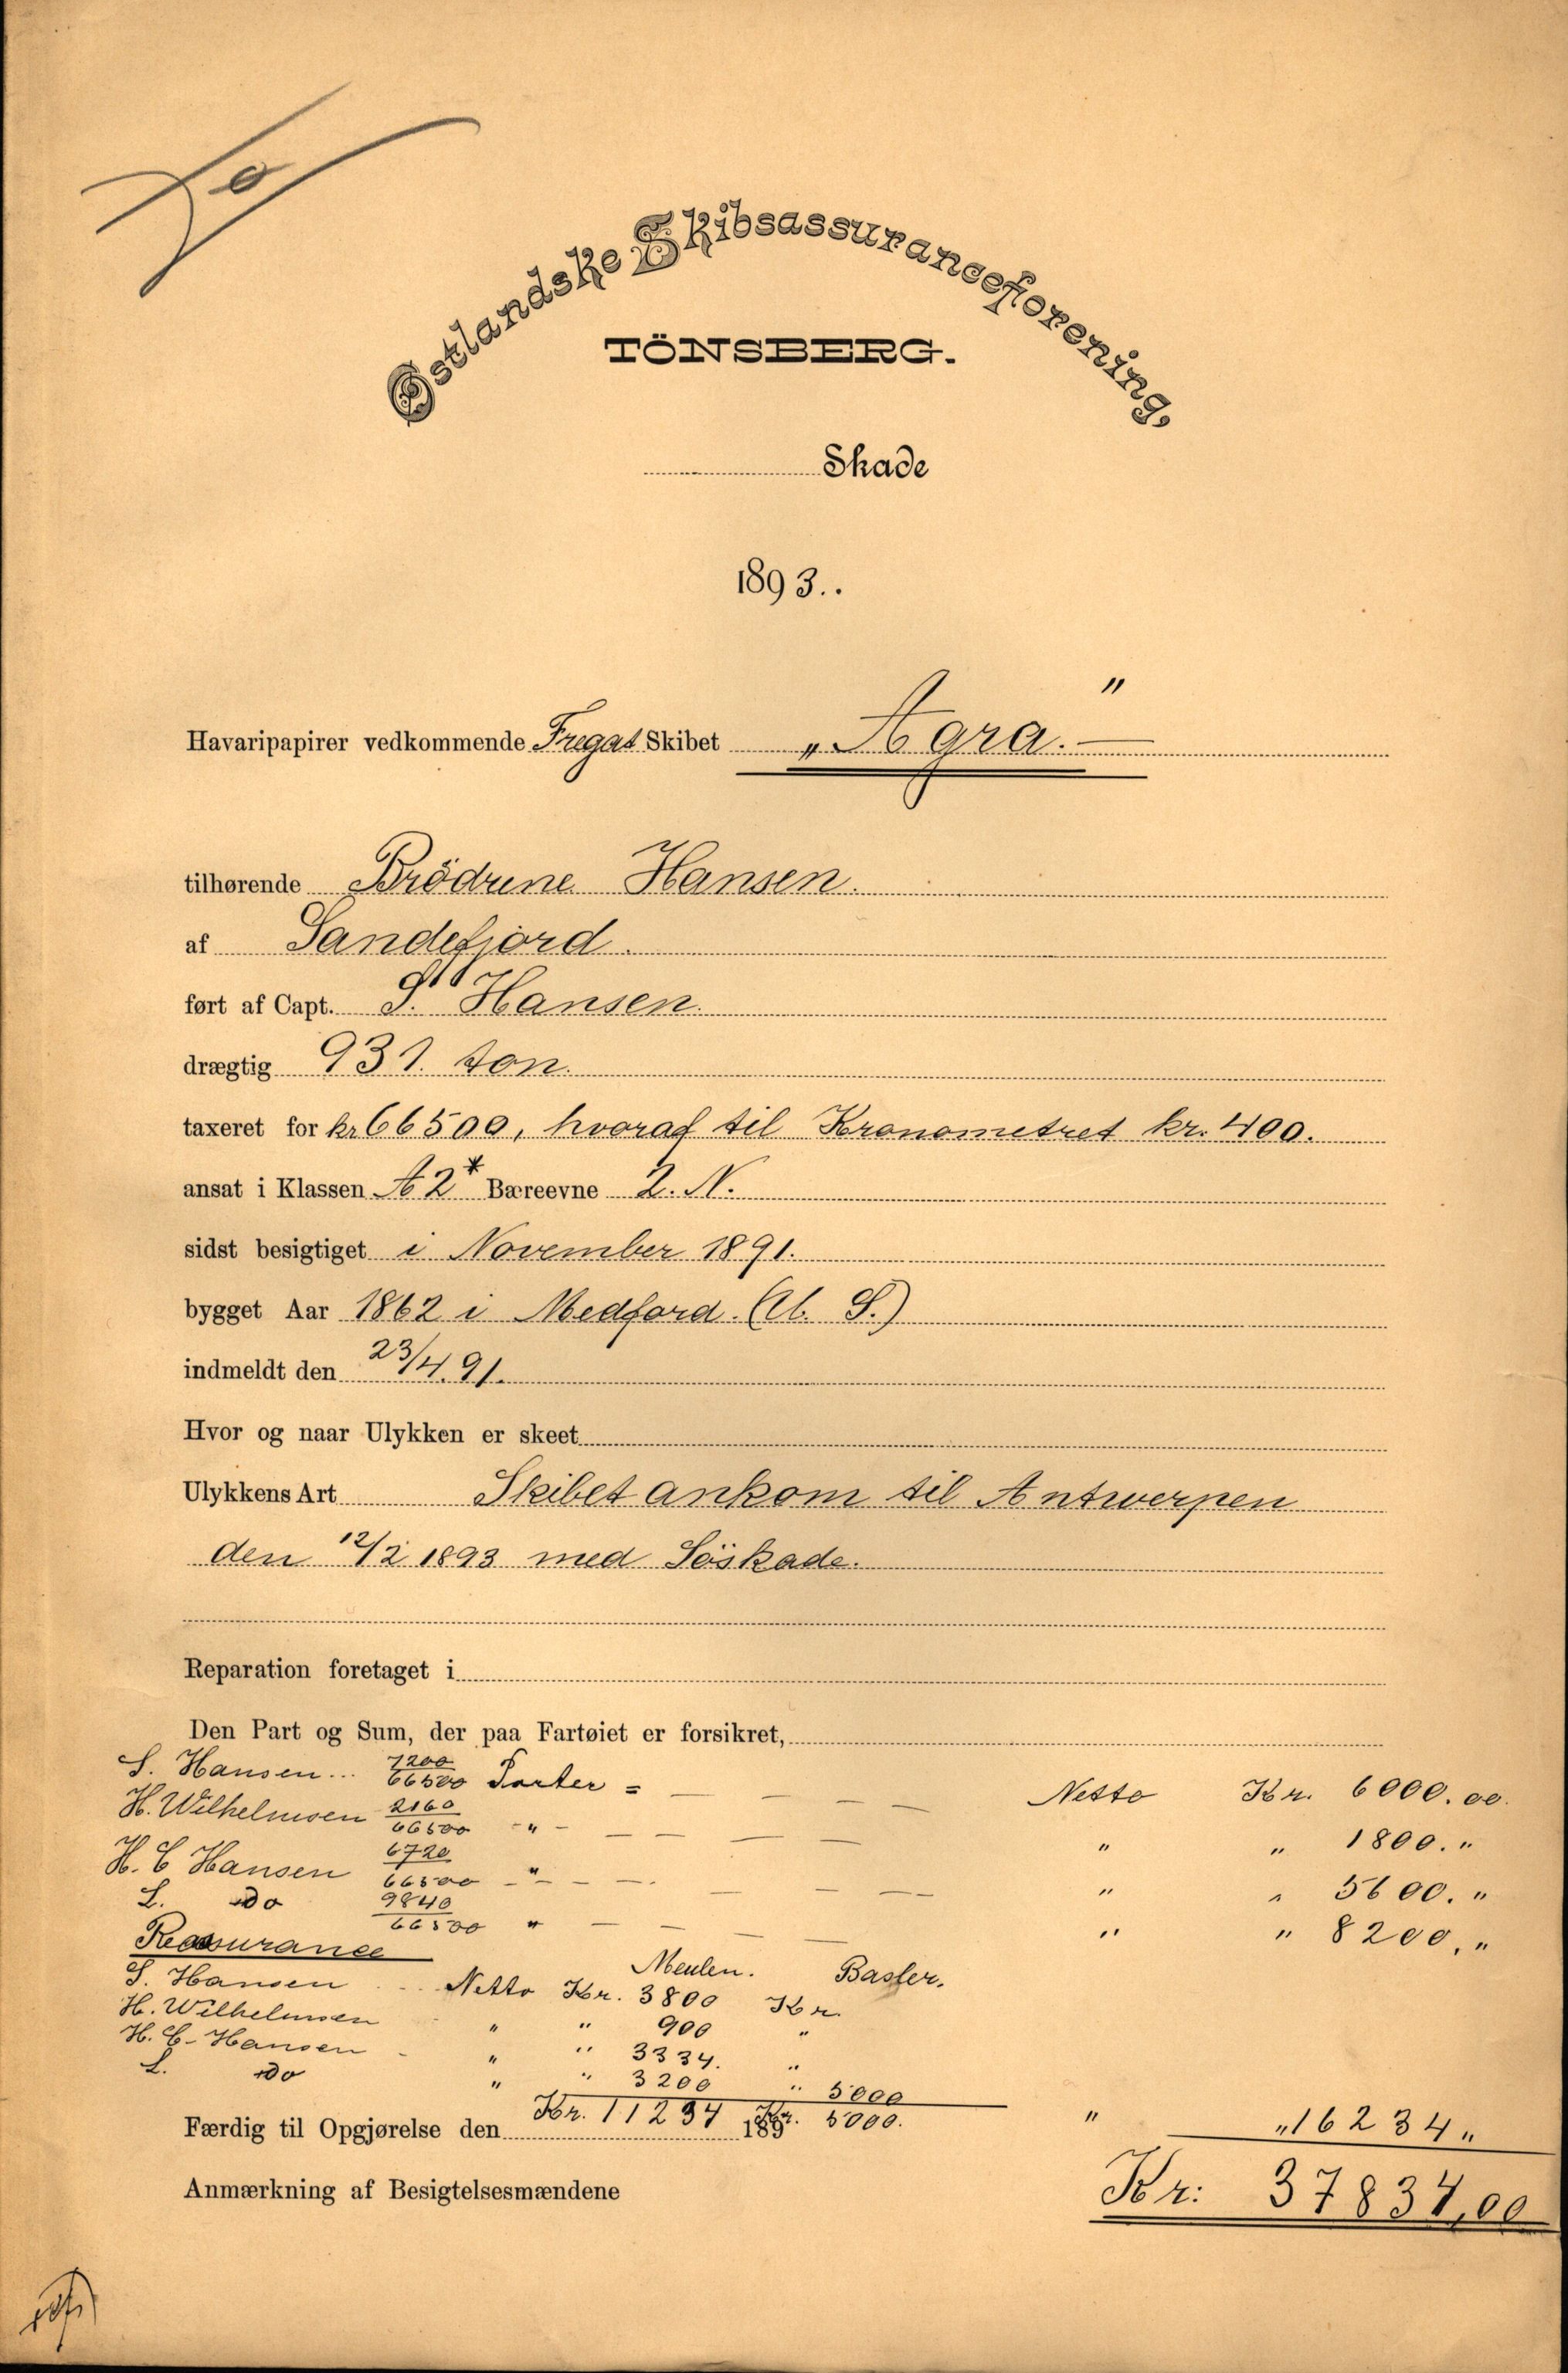 Østlandske Skibsassuranceforening,
TÖNSBERG.
Skade
1893..
Havaripapirer vedkommende Fregat Skibet „Agra.“
tilhørende Brödrene Hansen.
af Sandefjord.
ført af Capt. S. Hansen.
drægtig 931. ton.
taxeret for kr 66500, hvoraf til Kronometret kr. 400.
ansat i Klassen A 2* Bæreevne 2. N.
sidst besigtiget i November 1891.
bygget Aar 1862 i Medford. (A. S.)
indmeldt den 23/4. 91.
Hvor og naar Ulykken er skeet
Ulykkens Art Skibet ankom til Antwerpen
den 12/2 1893 med Söskade.
Reparation foretaget i
Den Part og Sum, der paa Fartøiet er forsikret,
S. Hansen... 7200/66500 Parter = Netto Kr. 6000.00.
H. Wilhelmsen 2160/66500 - " - " " 1800. "
H. C Hansen 6720/66500 - " - " " 5600. "
L. do 9840/66500 " " " 8200. "
Reassurance
Meulen. Basler.
S. Hansen ... Netto Kr. 3800 Kr.
H. Wilhelmsen " " 900 "
H. C. Hansen - " " 3334. "
L. do " " 3200 " 5000
Færdig til Opgjørelse den Kr. 11234 189 Kr. 5000. " " 16234 "
Anmærkning af Besigtelsesmændene Kr: 37834,00